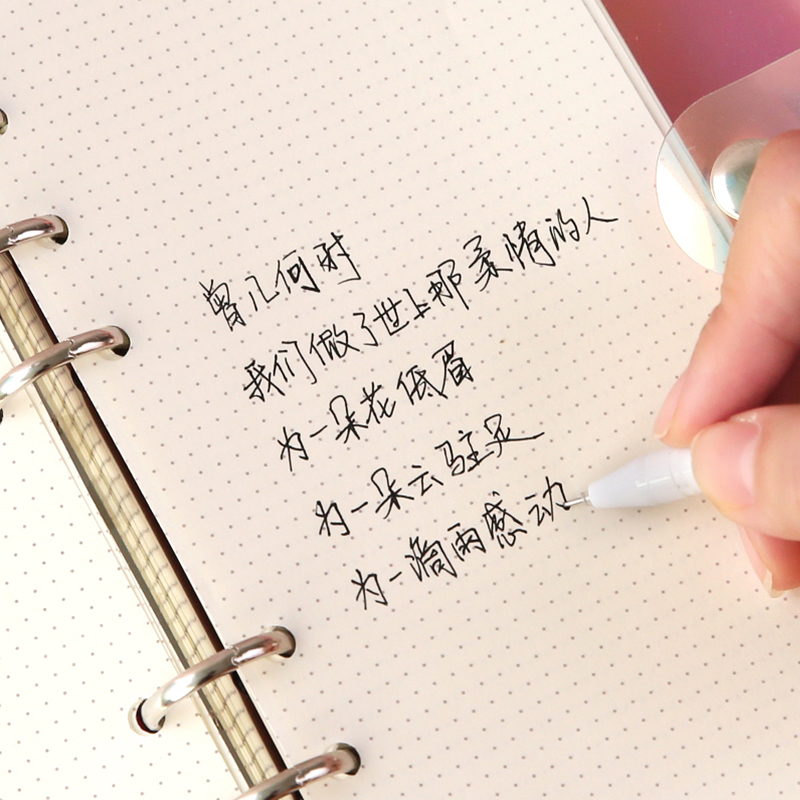 曾几何时
我们做了世上那柔情的人
为一朵花低眉
为一朵云驻足
为一滴雨感动